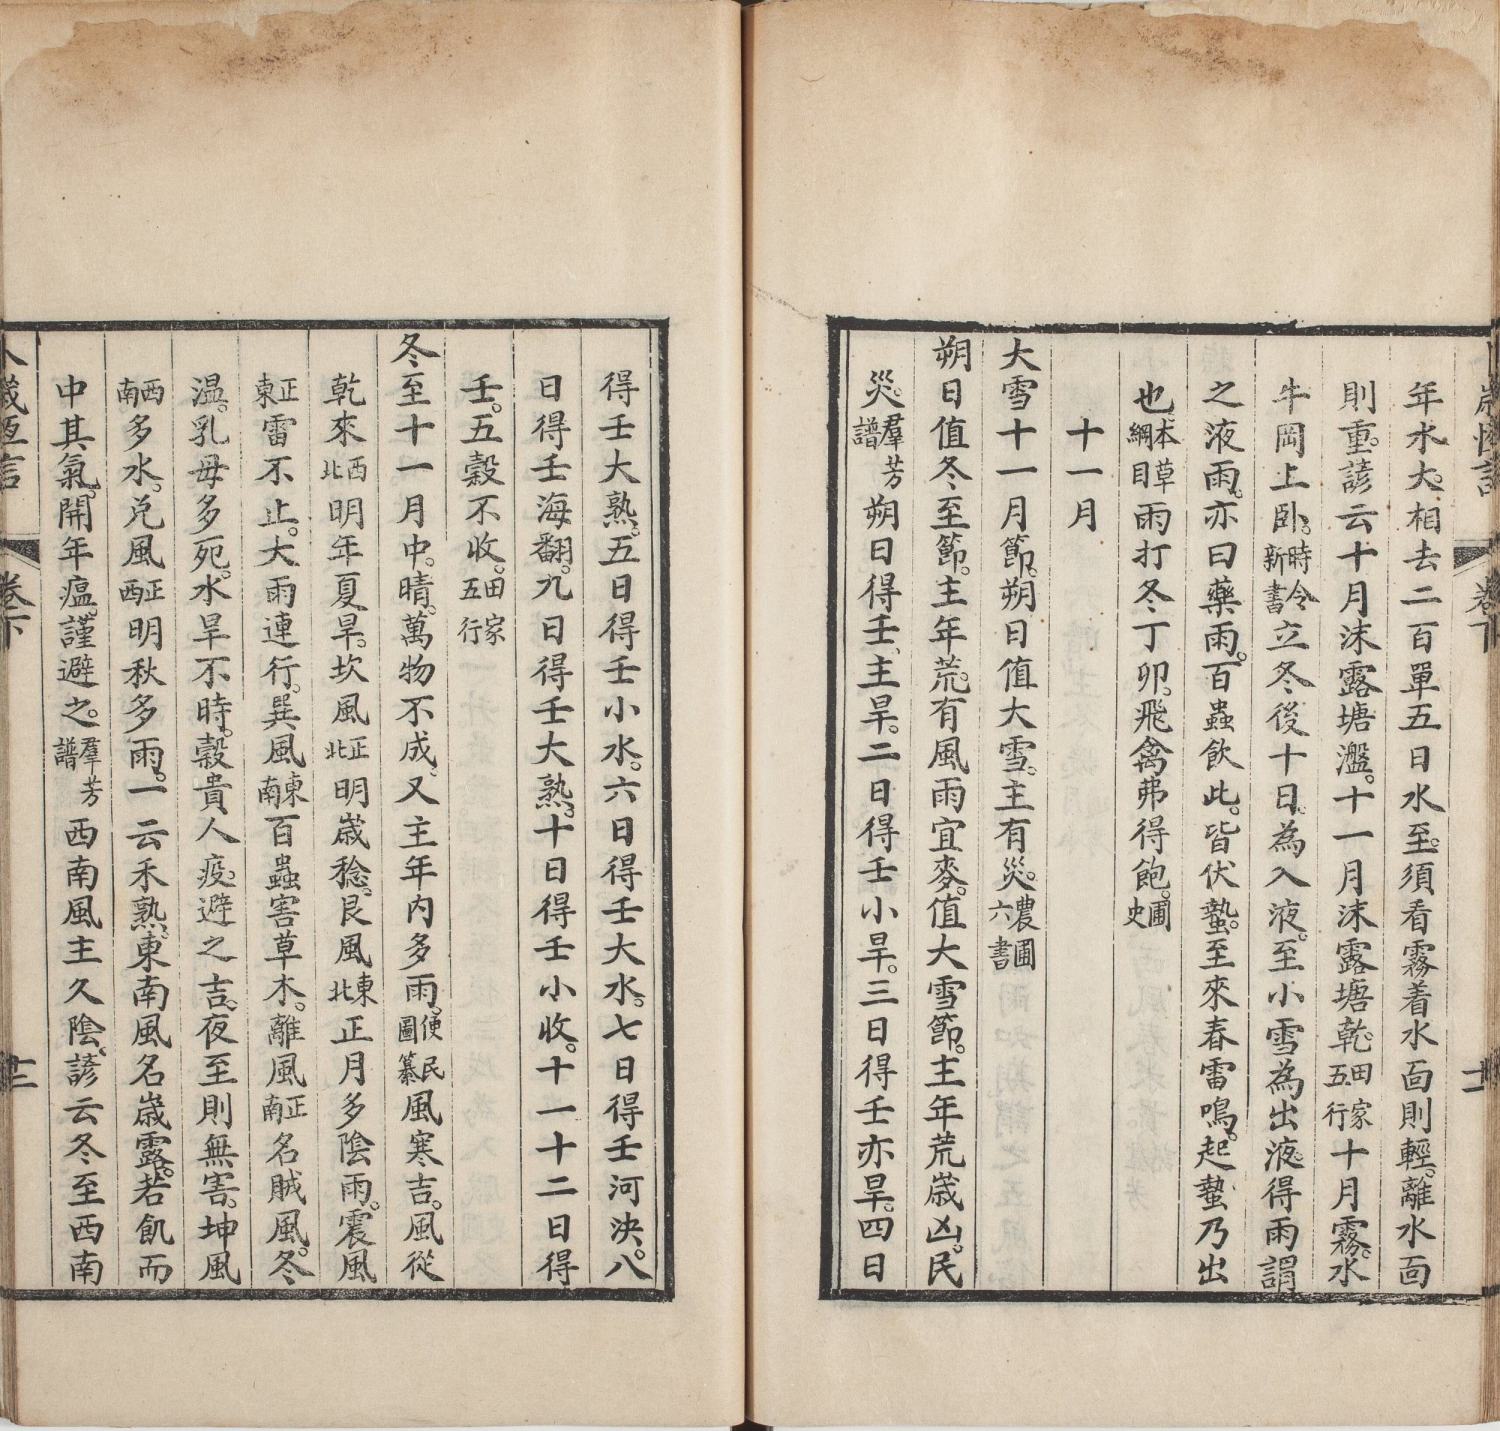 卷下
十一
年水大。相去二百單五日水至。須看霧着水面則輕。離水面
則重。諺云十月沫露塘灠。十一月沫露塘乾。田家五行十月霧。水
牛岡上卧。時令新書立冬後十日。為入液。至小雪為出液。得雨謂
之液雨。亦曰藥雨。百蟲飲此。皆伏蟄。至來春雷鳴。起蟄乃出
也本草綱目雨打冬丁卯。飛禽弗得飽。圃史
十一月
大雪十一月節。朔日值大雪。主有災。農圃六書
朔日值冬至節。主年荒。有風雨宜麥。值大雪節。主年荒歲凶。民
災。羣芳譜朔日得壬、主旱。二日得壬小旱。三日得壬亦旱。四日
得壬大熟。五日得壬小水。六日得壬大水。七日得壬河決。八
日得壬海翻。九日得壬大熟。十日得壬小收。十一十二日得
壬。五穀不收。田家五行
冬至十一月中。晴。萬物不成。又主年内多雨。便民圖纂風寒吉。風從
乾來西北明年夏旱。坎風正北明歲稔。艮風東北正月多陰雨。震風
正東雷不止。大雨連行。巽風東南百蟲害草木。離風正南名賊風。冬
温。乳母多死。水旱不時。穀貴人疫。避之吉。夜至則無害。坤風
西南多水。兌風正西明秋多雨。一云禾熟。東南風名歲露。若飢而
中其氣。開年瘟。謹避之。羣芳譜西南風主久陰。諺云冬至西南
卷下
十二